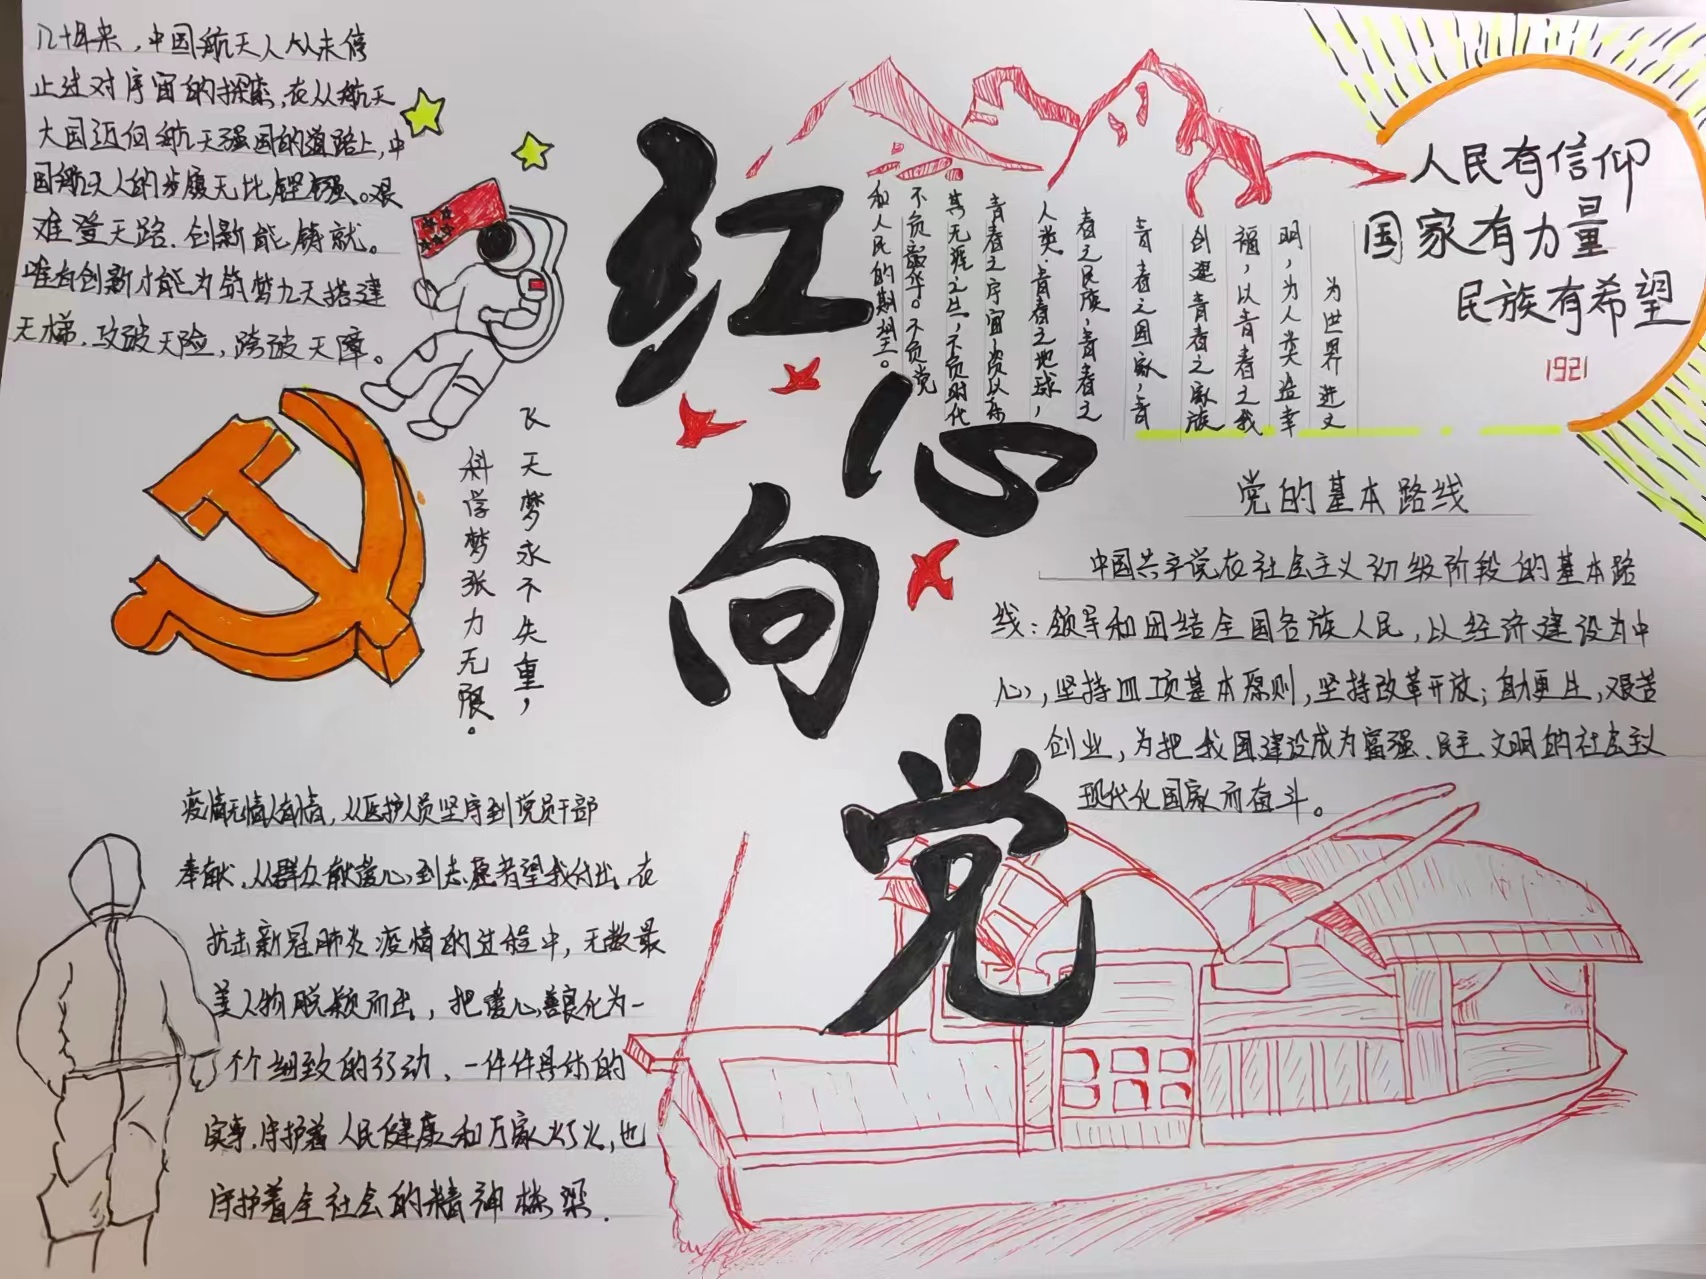 几十年来，中国航天人从未停
止过对宇宙的探索，在从航天
大国迈向航天强国的道路上，中
国航天人的步履无比坚强。艰
难登天路，创新能铸就。
唯有创新才能为筑梦九天搭建
天梯，攻破天险，跨破天障。
飞天梦永不失重，
科学梦张力无限。
红心向党
为世界进文
明，为人类造幸
福，以青春之我
创建青春之家庭
青春之国家，青
春之民族，青春之
人类，青春之地球，
青春之宇宙，资以乐
其无涯之生，不负时代
不负韶华。不负党
和人民的期望。
人民有信仰
国家有力量
民族有希望
1921
党的基本路线
中国共产党在社会主义初级阶段的基本路
线：领导和团结全国各族人民，以经济建设为中
心，坚持四项基本原则，坚持改革开放；自力更生，艰苦
创业，为把我国建设成为富强、民主、文明的社会主义
现代化国家而奋斗。
疫情无情人有情，从医护人员坚守到党员干部
奉献，从群众献爱心到志愿者望我付出，在
抗击新冠肺炎疫情的过程中，无数最
美人物脱颖而出，把爱心善良化为一
个个细致的行动，一件件具体的
实事，守护着人民健康和万家灯火，也
守护着全社会的精神栋梁.